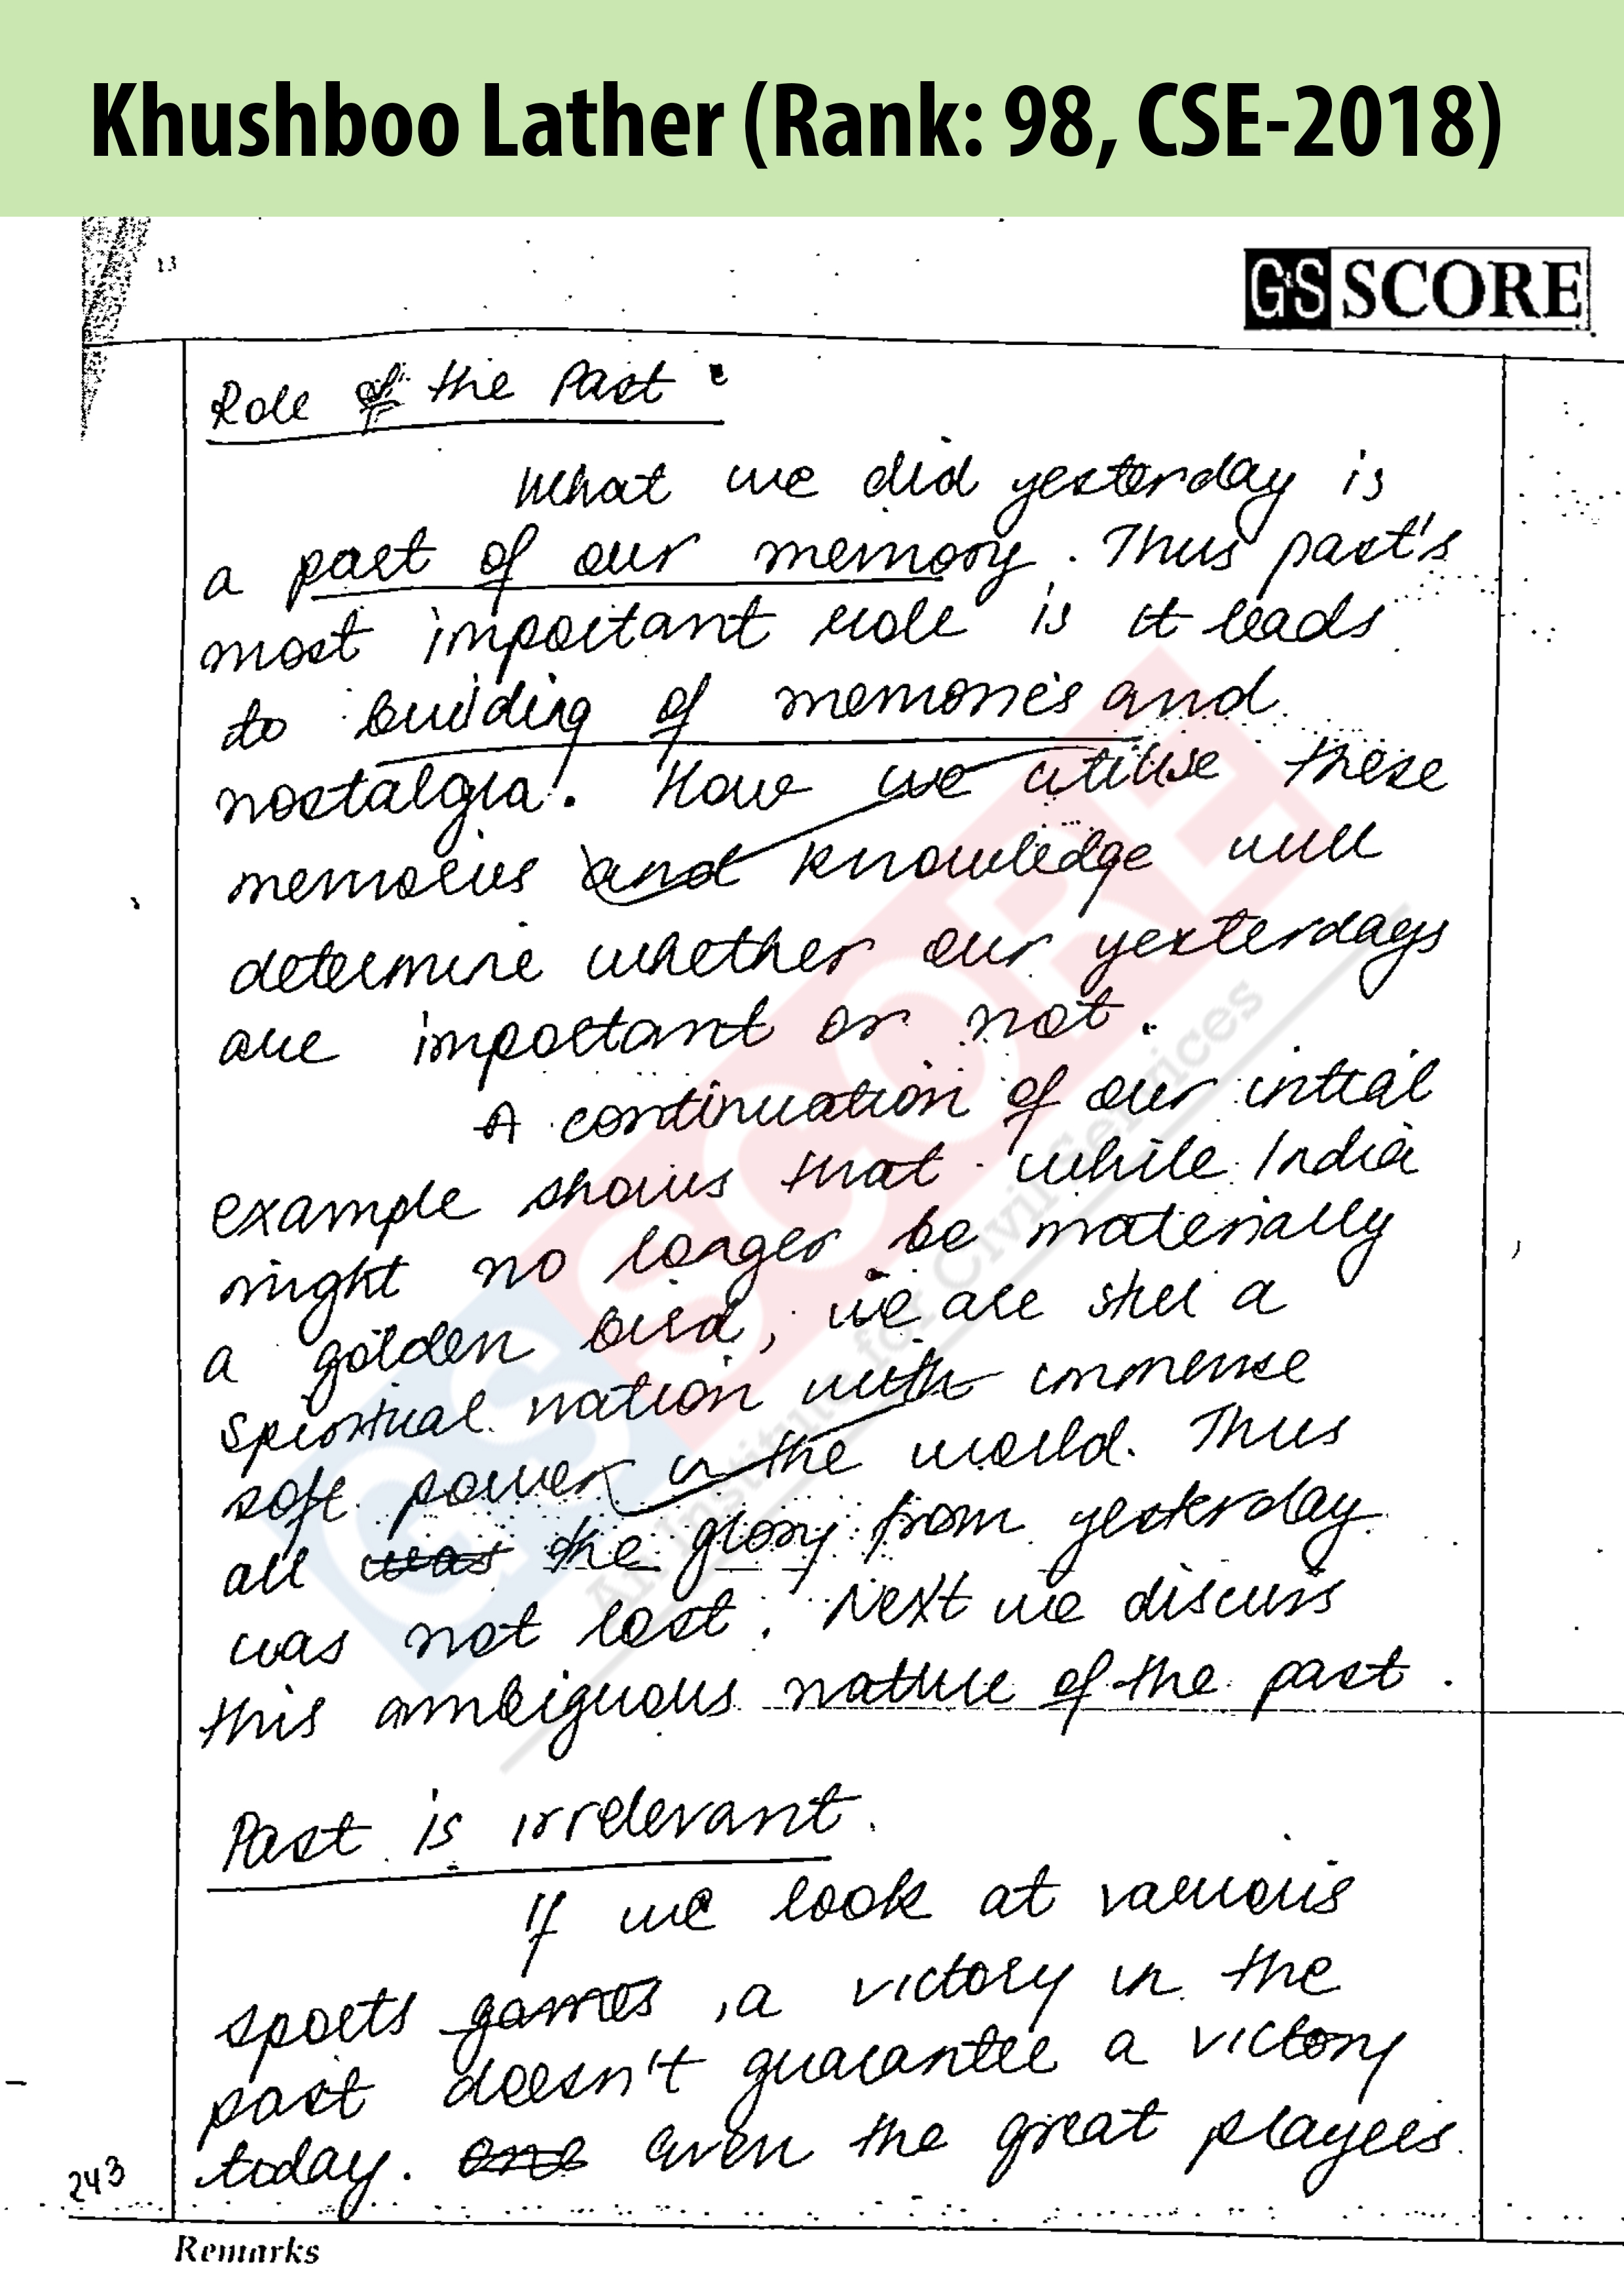 Khushboo Lather (Rank: 98, CSE-2018)
13
GS SCORE
Role of the Past :
What we did yesterday is
a part of our memory. Thus past's
most important role is it leads
to building of memories and
nostalgia. How we utilise these
memories and knowledge will
determine whether our yesterdays
are important or not.
A continuation of our intial
example shows that while India
might no longer be materially
a golden bird, we are still a
spiritual nation with immense
soft power in the world. Thus
all was the glory from yesterday
was not lost. Next we discuss
this ambiguous nature of the past.
Past is irrelevant.
If we look at various
sports games, a victory in the
past doesn't guarantee a victory
today. one Even the great players
243
Remarks
GS SCORE
An Institute for Civil Services